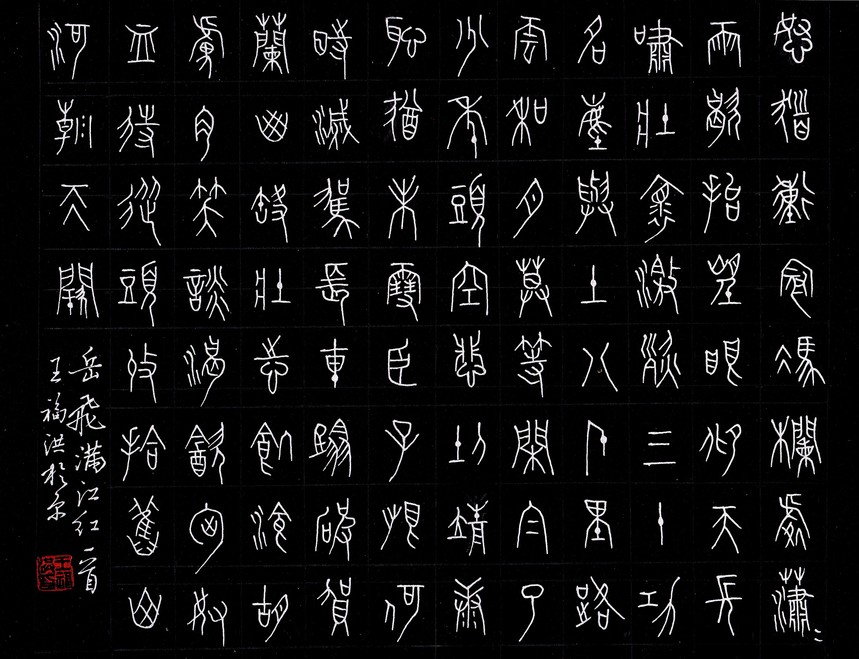 怒髮衝冠馮欄處瀟〻
雨歇抬望眼仰天長
嘯壯懷激烈三十功
名塵與土八千里路
雲和月莫等閑白了
少年頭空悲切靖康
恥猶未雪臣子恨何
時滅駕長車踏破賀
蘭山缺壯志飢飡胡
虜肉笑談渴飲匈奴
血待從頭收拾舊山
河朝天闕
岳飛满江红一首
王福洪於京